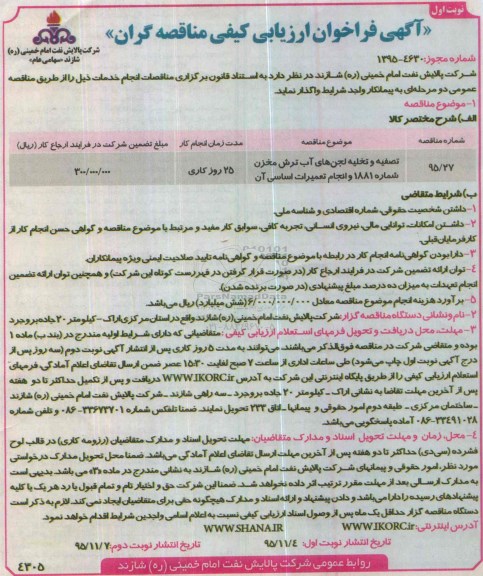 نوبت اول
«آگهی فراخوان ارزیابی کیفی مناقصه گران»
شرکت پالایش نفت امام خمینی (ره)
شازند «سهامی عام»
شماره مجوز: ۱۳۹۵-۴۶۳۰
شرکت پالایش نفت امام خمینی (ره) شازند در نظر دارد به استناد قانون برگزاری مناقصات انجام خدمات ذیل را از طریق مناقصه
عمومی دو مرحله‌ای به پیمانکار واجد شرایط واگذار نماید.
۱-موضوع مناقصه
الف) شرح مختصر کالا
شماره مناقصه موضوع مناقصه مدت زمان انجام کار مبلغ تضمین شرکت در فرایند ارجاع کار (ریال)
۹۵/۲۷ تصفیه و تخلیه لجن‌های آب ترش مخزن شماره ۱۸۸۱ و انجام تعمیرات اساسی آن ۲۵ روز کاری ۳۰۰/۰۰۰/۰۰۰
ب) شرایط متقاضی
۱-داشتن شخصیت حقوقی، شماره اقتصادی و شناسه ملی.
۲-داشتن امکانات، توانایی مالی، نیروی انسانی، تجربه کافی، سوابق کار مفید و مرتبط با موضوع مناقصه و گواهی حسن انجام کار از
کارفرمایان قبلی.
۳-دارا بودن گواهی‌نامه انجام کار در رابطه با موضوع مناقصه و گواهی‌نامه تایید صلاحیت ایمنی ویژه پیمانکاران.
۴-توان ارائه تضمین شرکت در فرایند ارجاع کار (در صورت قرار گرفتن در فهرست کوتاه این شرکت) و همچنین توان ارائه تضمین
انجام تعهدات به میزان ده درصد مبلغ پیشنهادی (در صورت برنده شدن).
۵-برآورد هزینه انجام موضوع مناقصه معادل ۶/۰۰۰/۰۰۰/۰۰۰ (شش میلیارد) ریال می‌باشد.
۲-نام و نشانی دستگاه مناقصه گزار: شرکت پالایش نفت امام خمینی (ره) شازند واقع در استان مرکزی اراک-کیلومتر ۲۰ جاده بروجرد
۳-مهلت، محل دریافت و تحویل فرمهای استعلام ارزیابی کیفی: متقاضیانی که دارای شرایط اولیه مندرج در (بند ب) ماده ۱
بوده و متقاضی شرکت در مناقصه فوق‌الذکر می‌باشند، می‌توانند به مدت ۵ روز کاری پس از انتشار آگهی نوبت دوم (سه روز پس از
درج آگهی نوبت اول چاپ می‌شود) طی ساعات اداری از ساعت ۷ صبح لغایت ۱۵:۳۰ عصر ضمن ارسال تقاضای اعلام آمادگی، فرمهای
استعلام ارزیابی کیفی را از طریق پایگاه اینترنتی این شرکت به آدرس WWW.IKORC.ir دریافت و پس از تکمیل حداکثر تا دو هفته
پس از آخرین مهلت تقاضا به نشانی اراک-کیلومتر ۲۰ جاده بروجرد-سه راهی شازند-شرکت پالایش نفت امام خمینی (ره) شازند
-ساختمان مرکزی-طبقه دوم امور حقوقی و پیمانها-اتاق ۲۳۳ تحویل نمایند. ضمنا تلفکس شماره ۳۳۶۷۳۷۰۱-۰۸۶ و تلفن شماره
۳۳۴۹۱۰۲۸-۰۸۶ آماده پاسخگویی می‌باشد.
۴-محل، زمان و مهلت تحویل اسناد و مدارک متقاضیان: مهلت تحویل اسناد و مدارک متقاضیان (رزومه کاری) در قالب لوح
فشرده (سی‌دی) حداکثر تا دو هفته پس از آخرین مهلت ارسال تقاضای اعلام آمادگی می‌باشد. ضمنا محل تحویل مدارک درخواستی
مورد نظر، امور حقوقی و پیمانهای شرکت پالایش نفت امام خمینی (ره) شازند به نشانی مندرج در ماده «۳» می باشد. بدیهی است
به مدارک ارسالی بعد از مهلت مقرر ترتیب اثر داده نخواهد شد. ضمنا این شرکت حق و اختیار تام و تمام قبول یا رد هر یک یا کلیه
پیشنهادهای رسیده را دارا می‌باشد و دادن پیشنهاد و ارائه اسناد و مدارک هیچگونه حقی برای متقاضیان ایجاد نمی کند. لازم به ذکر است
دستگاه مناقصه گزار حداقل یک ماه پس از وصول اسناد ارزیابی کیفی نسبت به اعلام اسامی واجدین شرایط اقدام خواهد نمود.
آدرس اینترنتی: WWW.IKORC.ir WWW.SHANA.IR
تاریخ انتشار نوبت اول: ۹۵/۱۱/۴ تاریخ انتشار نوبت دوم: ۹۵/۱۱/۷
روابط عمومی شرکت پالایش نفت امام خمینی (ره) شازند
۴۳۰۵